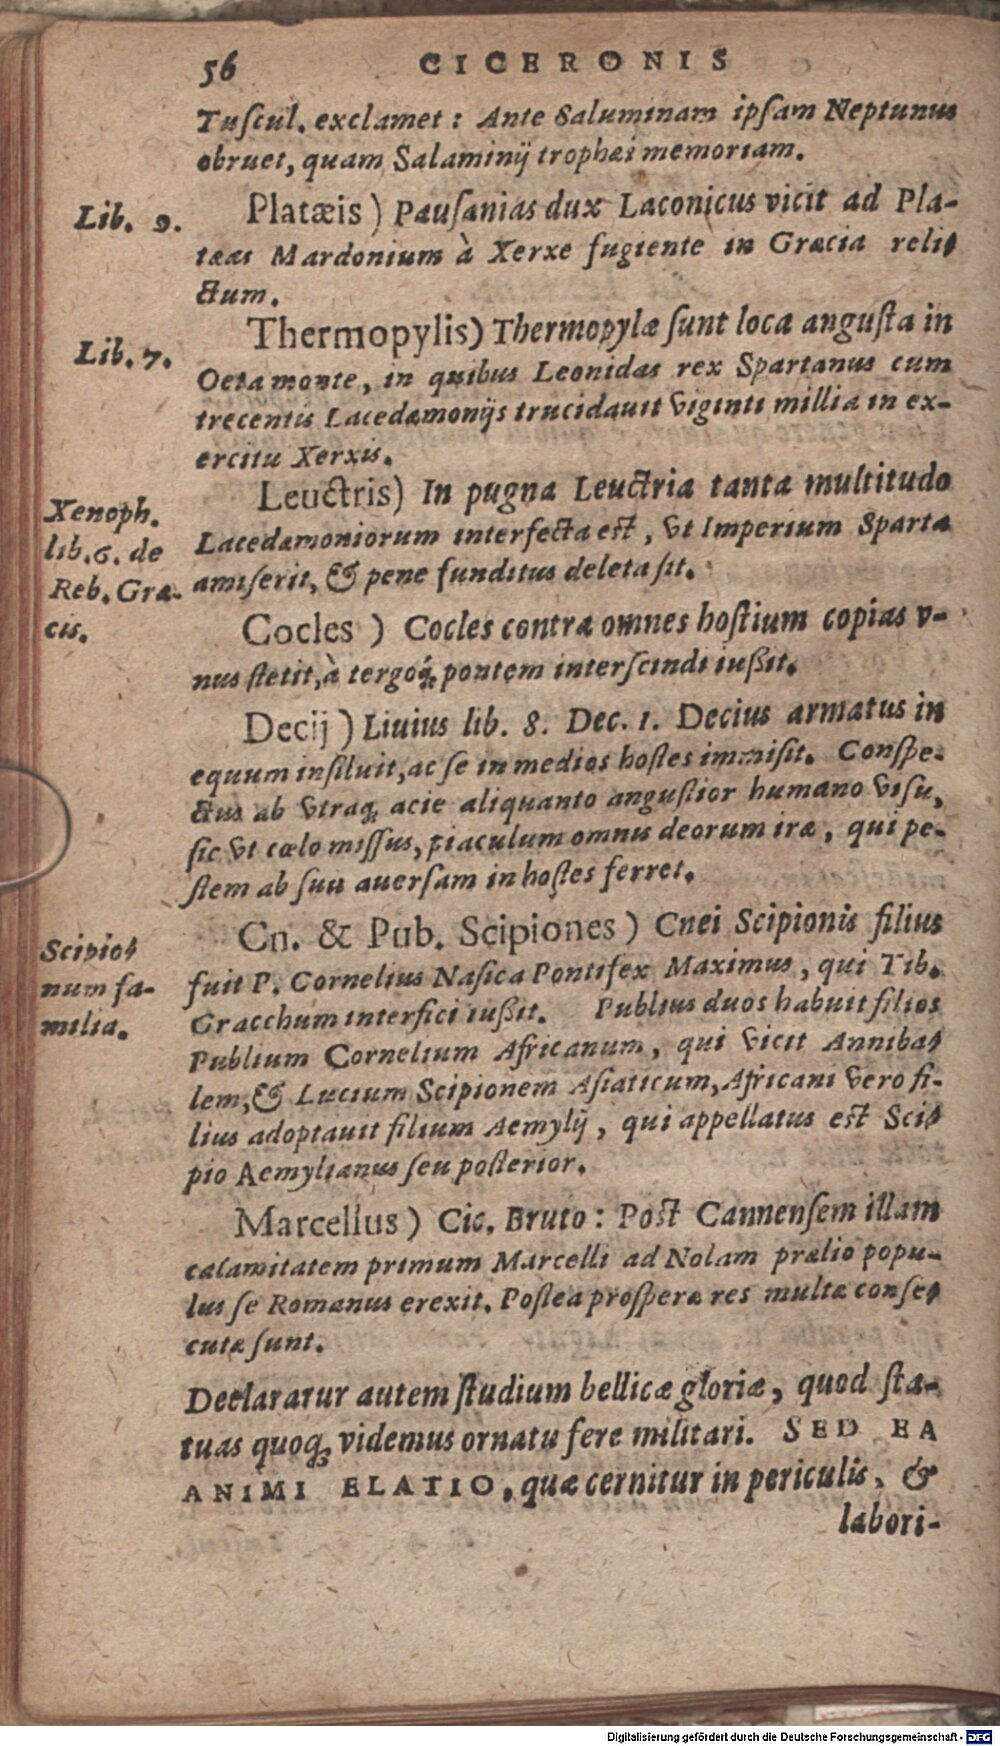 56 CICERONIS
Tuſcul. exclamet: Ante Saluminam ipſam Neptunus
obruet, quam Salaminij trophæi memoriam.
Lib. 9.
Platæis) Pauſanias dux Laconicus vicit ad Pla-
tæas Mardonium à Xerxe fugiente in Græcia reli-
ctum.
Lib. 7.
Thermopylis) Thermopylæ ſunt loca anguſta in
Oeta monte, in quibus Leonidas rex Spartanus cum
trecentis Lacedæmonijs trucidauit viginti millia in ex-
ercitu Xerxis.
Xenoph.
lib. 6. de
Reb. Græ-
cis.
Leuctris) In pugna Leuctria tanta multitudo
Lacedæmoniorum interfecta est, vt Imperium Sparta
amiſerit, & pene funditus deleta ſit.
Cocles) Cocles contra omnes hoſtium copias v-
nus ſtetit, à tergoq́; pontem interſcindi iußit.
Decij) Liuius lib. 8. Dec. 1. Decius armatus in
equum inſiluit, ac ſe in medios hoſtes immiſit. Conſpe-
ctus ab vtraq; acie aliquanto anguſtior humano viſu,
ſic vt cœlo miſſus, piaculum omnis deorum iræ, qui pe-
ſtem ab suis auerſam in hoſtes ferret.
Scipio-
num fa-
milia.
Cn. & Pub. Scipiones) Cnei Scipionis filius
fuit P. Cornelius Naſica Pontifex Maximus, qui Tib.
Gracchum interfici iußit. Publius duos habuit filios
Publium Cornelium Africanum, qui vicit Anniba-
lem, & Lucium Scipionem Aſiaticum, Africani vero fi-
lius adoptauit filium Aemylij, qui appellatus est Sci-
pio Aemylianus ſeu poſterior.
Marcellus) Cic. Bruto: Post Cannenſem illam
calamitatem primum Marcelli ad Nolam prælio popu-
lus ſe Romanus erexit. Poſtea proſperæ res multæ conſe-
cutæ ſunt.
Declaratur autem ſtudium bellicæ gloriæ, quod ſta-
tuas quoq; videmus ornatu fere militari. SED EA
ANIMI ELATIO, quæ cernitur in periculis, &
labori-
Digitalisierung gefördert durch die Deutsche Forschungsgemeinschaft - DFG